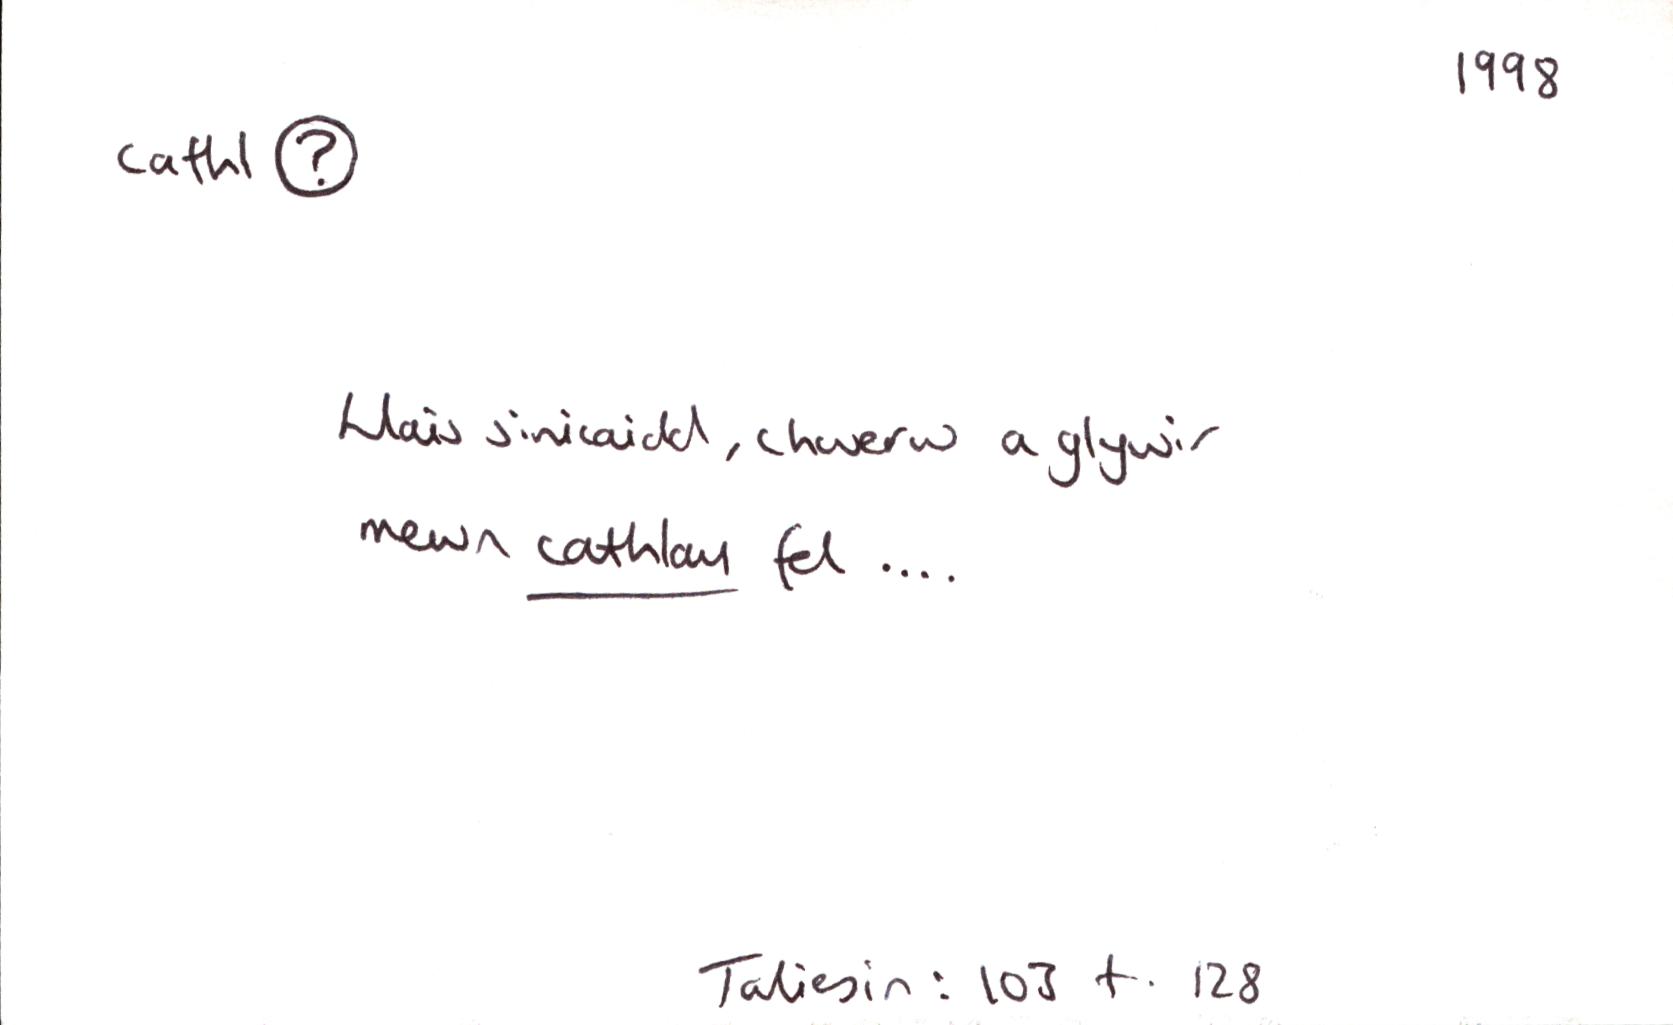 1998
cathl ?
Llais sinicaidd, chwerw a glywir
mewn cathlau fel ....
Taliesin: 103 t. 128